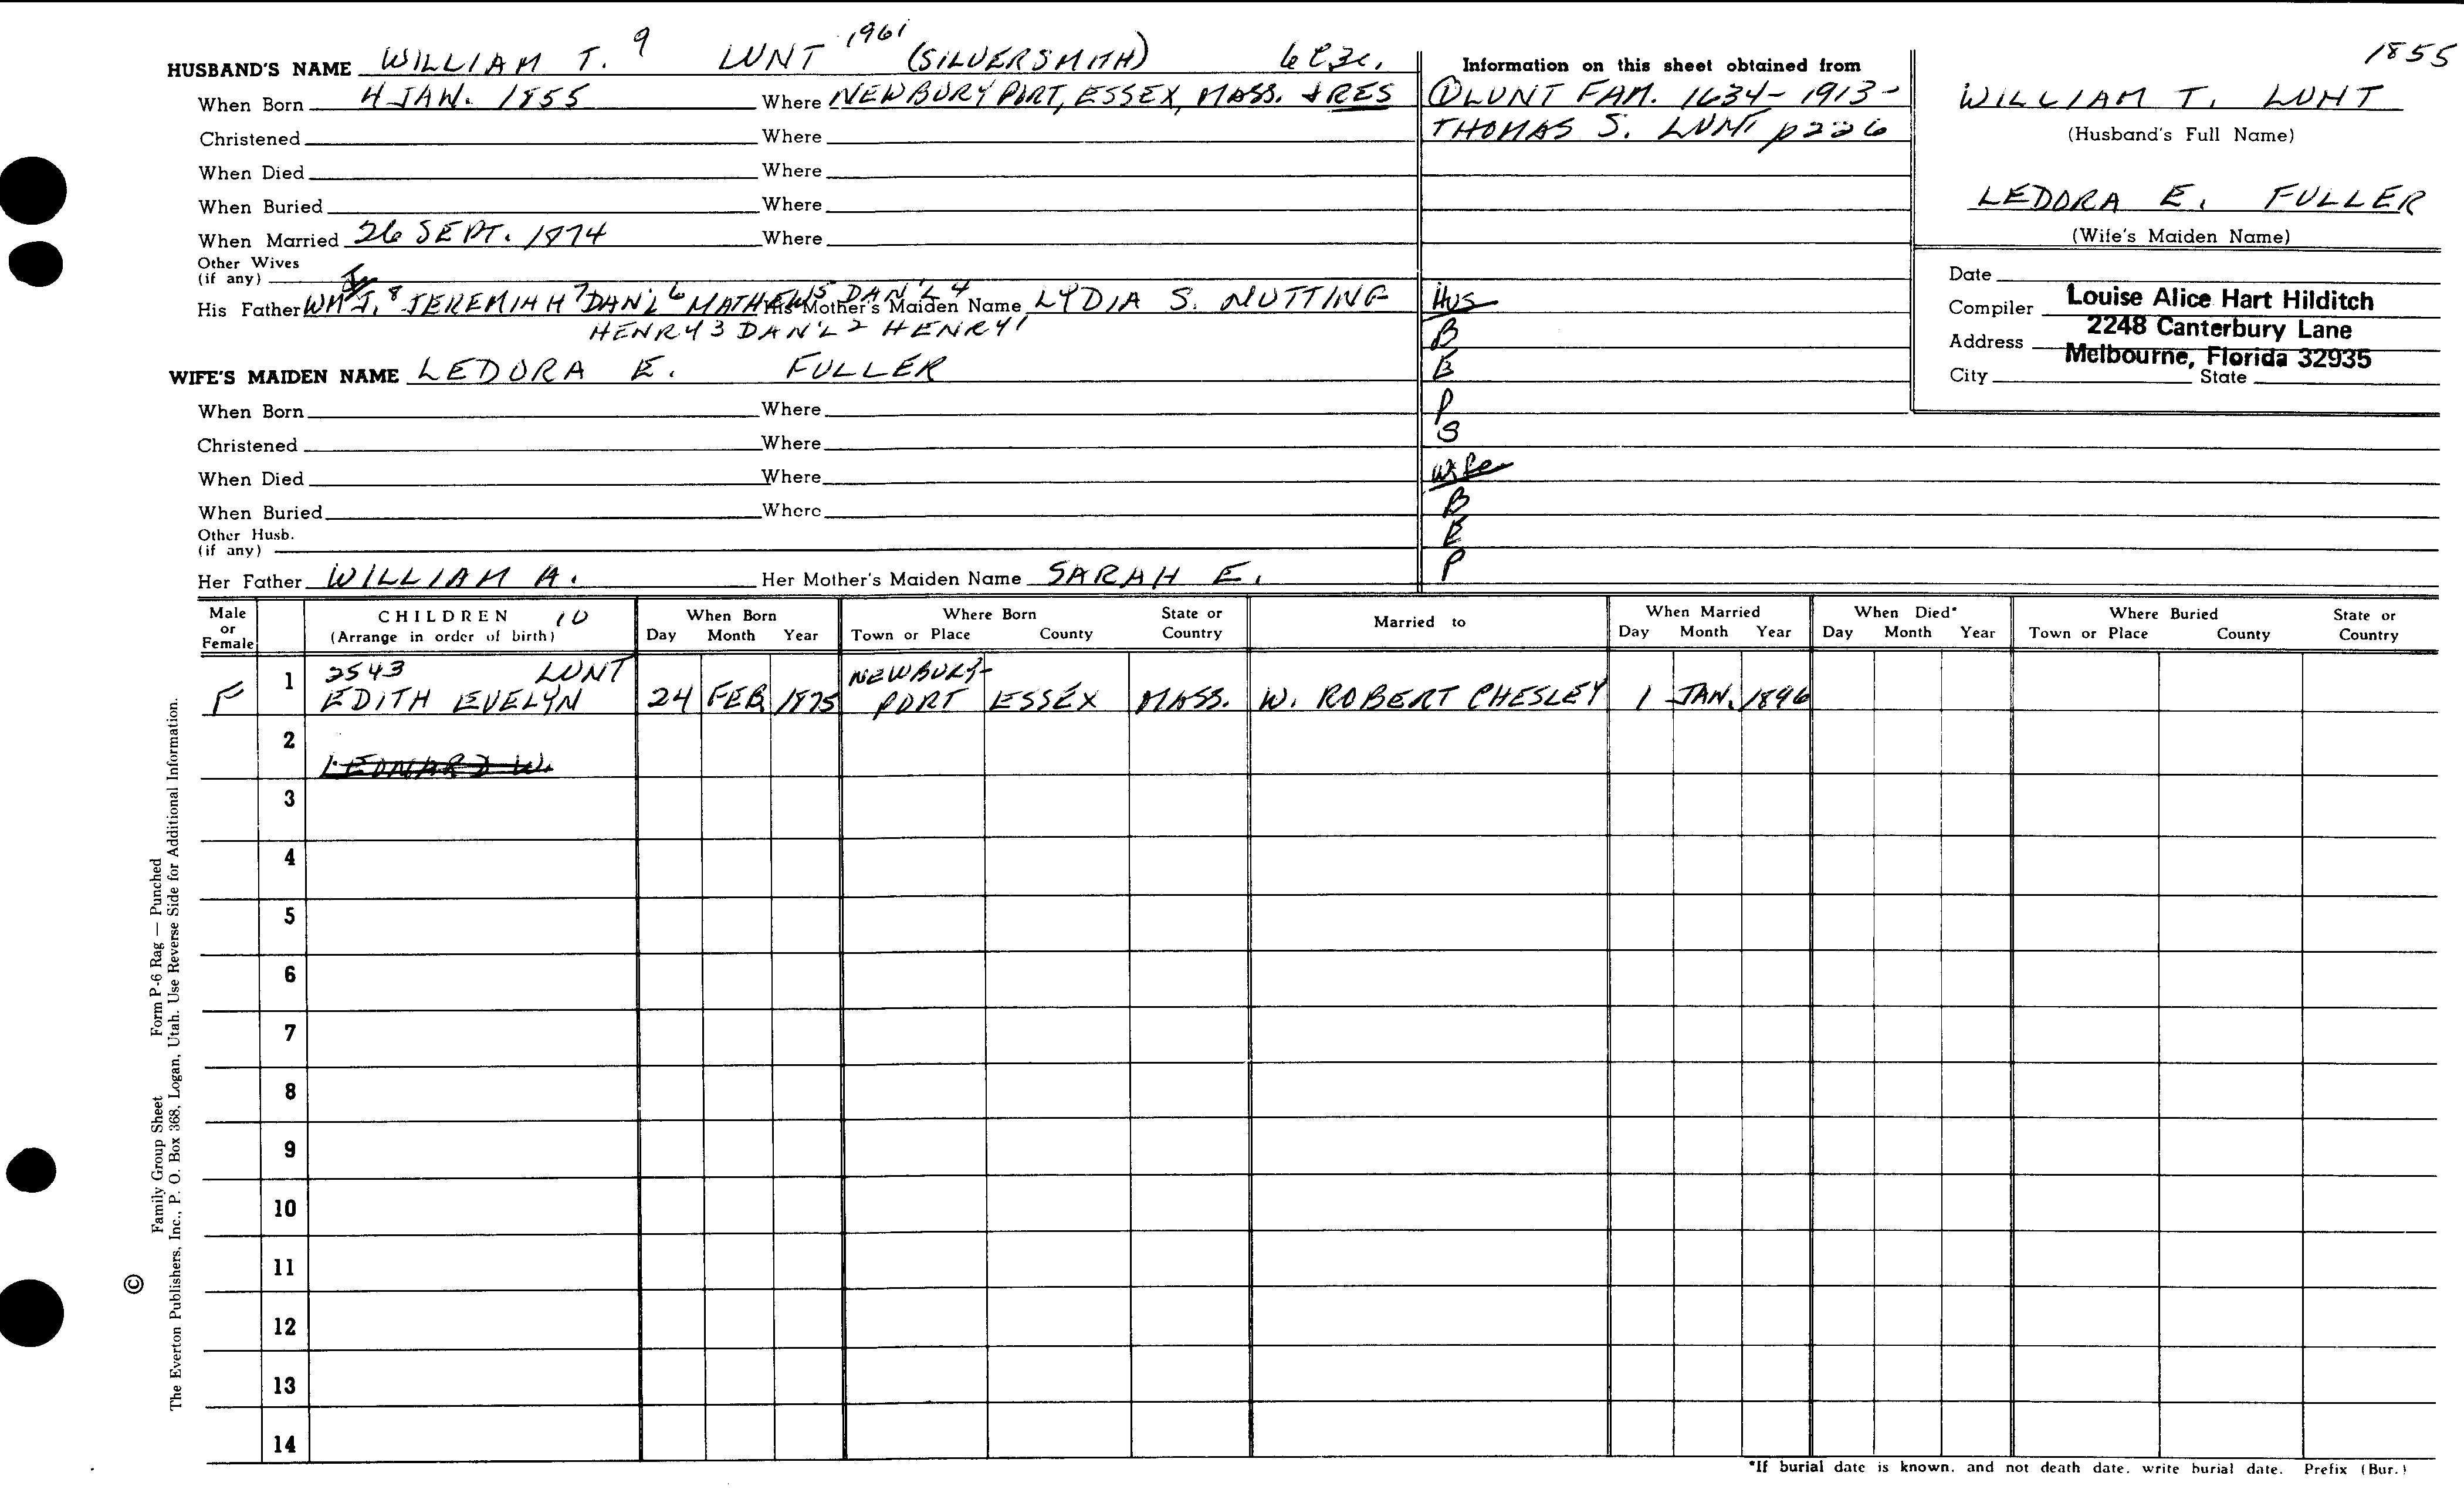 HUSBAND'S NAME WILLIAM T. 9 LUNT 1961 (SILVERSMITH)
When Born 4 JAN. 1855 Where NEWBURYPORT, ESSEX, MASS. + RES
Christened Where
When Died Where
When Buried Where
When Married 26 SEPT. 1874 Where
Other Wives
(if any)
His Father WM J. 8 JEREMIAH 7 DAN'L 6 MATHEWS 5 DAN'L 4 His Mother's Maiden Name LYDIA S. NUTTING
HENRY 3 DAN'L 2 HENRY 1
WIFE'S MAIDEN NAME LEDORA E. FULLER
When Born Where
Christened Where
When Died Where
When Buried Where
Other Husb.
(if any)
Her Father WILLIAM A. Her Mother's Maiden Name SARAH E.
Information on this sheet obtained from
① LUNT FAM. 1634-1913-
THOMAS S. LUNT p226
Hus
B
E
P
S
Wife
B
E
P
1855
WILLIAM T. LUNT
(Husband's Full Name)
LEDORA E. FULLER
(Wife's Maiden Name)
Date
Compiler Louise Alice Hart Hilditch
2248 Canterbury Lane
Address Melbourne, Florida 32935
City State
Male or Female CHILDREN 10 (Arrange in order of birth) When Born Day Month Year Where Born Town or Place County State or Country Married to When Married Day Month Year When Died* Day Month Year Where Buried Town or Place County State or Country
1 2543 LUNT NEWBURY-
F EDITH EVELYN 24 FEB 1875 PORT ESSEX MASS. W. ROBERT CHESLEY 1 JAN. 1896
2
LEONARD W.
3
4
5
6
7
8
9
10
11
12
13
14
*If burial date is known, and not death date, write burial date. Prefix (Bur.)
© Family Group Sheet Form P-6 Rag — Punched
The Everton Publishers, Inc., P. O. Box 368, Logan, Utah. Use Reverse Side for Additional Information.